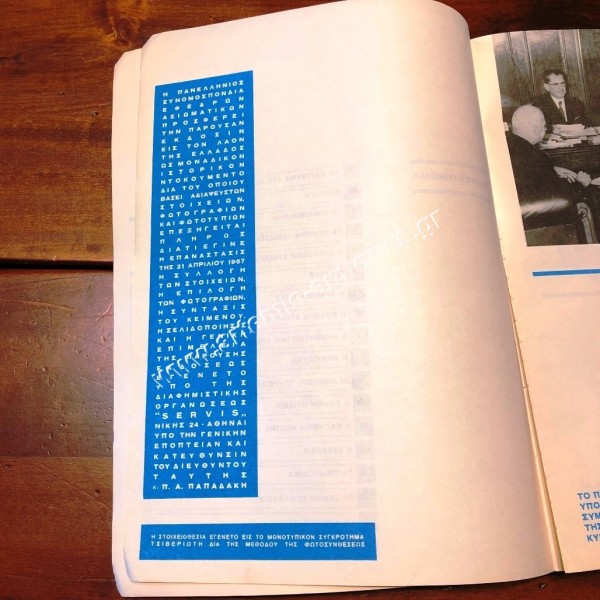 Η ΠΑΝΕΛΛΗΝΙΟΣ
ΣΥΝΟΜΟΣΠΟΝΔΙΑ
ΕΦΕΔΡΩΝ
ΑΞΙΩΜΑΤΙΚΩΝ
ΠΡΟΣΦΕΡΕΙ
ΤΗΝ ΠΑΡΟΥΣΑΝ
ΕΚΔΟΣΙΝ
ΕΙΣ ΤΟΝ ΛΑΟΝ
ΤΗΣ ΕΛΛΑΔΟΣ
ΩΣ ΜΟΝΑΔΙΚΟΝ
ΙΣΤΟΡΙΚΟΝ
ΝΤΟΚΟΥΜΕΝΤΟ
ΔΙΑ ΤΟΥ ΟΠΟΙΟΥ
ΒΑΣΕΙ ΑΔΙΑΨΕΥΣΤΩΝ
ΣΤΟΙΧΕΙΩΝ,
ΦΩΤΟΓΡΑΦΙΩΝ
ΚΑΙ ΦΩΤΟΤΥΠΙΩΝ
ΕΠΕΞΗΓΕΙΤΑΙ
ΠΛΗΡΩΣ
ΔΙΑΤΙ ΕΓΙΝΕ
Η ΕΠΑΝΑΣΤΑΣΙΣ
ΤΗΣ 21 ΑΠΡΙΛΙΟΥ 1967
Η ΣΥΛΛΟΓΗ
ΤΩΝ ΣΤΟΙΧΕΙΩΝ,
Η ΕΠΙΛΟΓΗ
ΤΩΝ ΦΩΤΟΓΡΑΦΙΩΝ,
Η ΣΥΝΤΑΞΙΣ
ΤΟΥ ΚΕΙΜΕΝΟΥ,
Η ΣΕΛΙΔΟΠΟΙΗΣΙΣ
ΚΑΙ Η ΓΕΝΙΚΗ
ΕΠΙΜΕΛΕΙΑ
ΤΗΣ ΠΑΡΟΥΣΗΣ
ΕΚΔΟΣΕΩΣ
ΕΓΕΝΕΤΟ
ΥΠΟ ΤΗΣ
ΔΙΑΦΗΜΙΣΤΙΚΗΣ
ΟΡΓΑΝΩΣΕΩΣ
"SERVIS"
ΝΙΚΗΣ 24 - ΑΘΗΝΑΙ
ΥΠΟ ΤΗΝ ΓΕΝΙΚΗΝ
ΕΠΟΠΤΕΙΑΝ ΚΑΙ
ΚΑΤΕΥΘΥΝΣΙΝ
ΤΟΥ ΔΙΕΥΘΥΝΤΟΥ
ΤΑΥΤΗΣ
κ. Π. Α. ΠΑΠΑΔΑΚΗ
Η ΣΤΟΙΧΕΙΟΘΕΣΙΑ ΕΓΕΝΕΤΟ ΕΙΣ ΤΟ ΜΟΝΟΤΥΠΙΚΟΝ ΣΥΓΚΡΟΤΗΜΑ
ΤΣΙΒΕΡΙΩΤΗ ΔΙΑ ΤΗΣ ΜΕΘΟΔΟΥ ΤΗΣ ΦΩΤΟΣΥΝΘΕΣΕΩΣ
ΤΟ Π
ΥΠΟ
ΣΥΜ
ΤΗΣ
ΚΥ